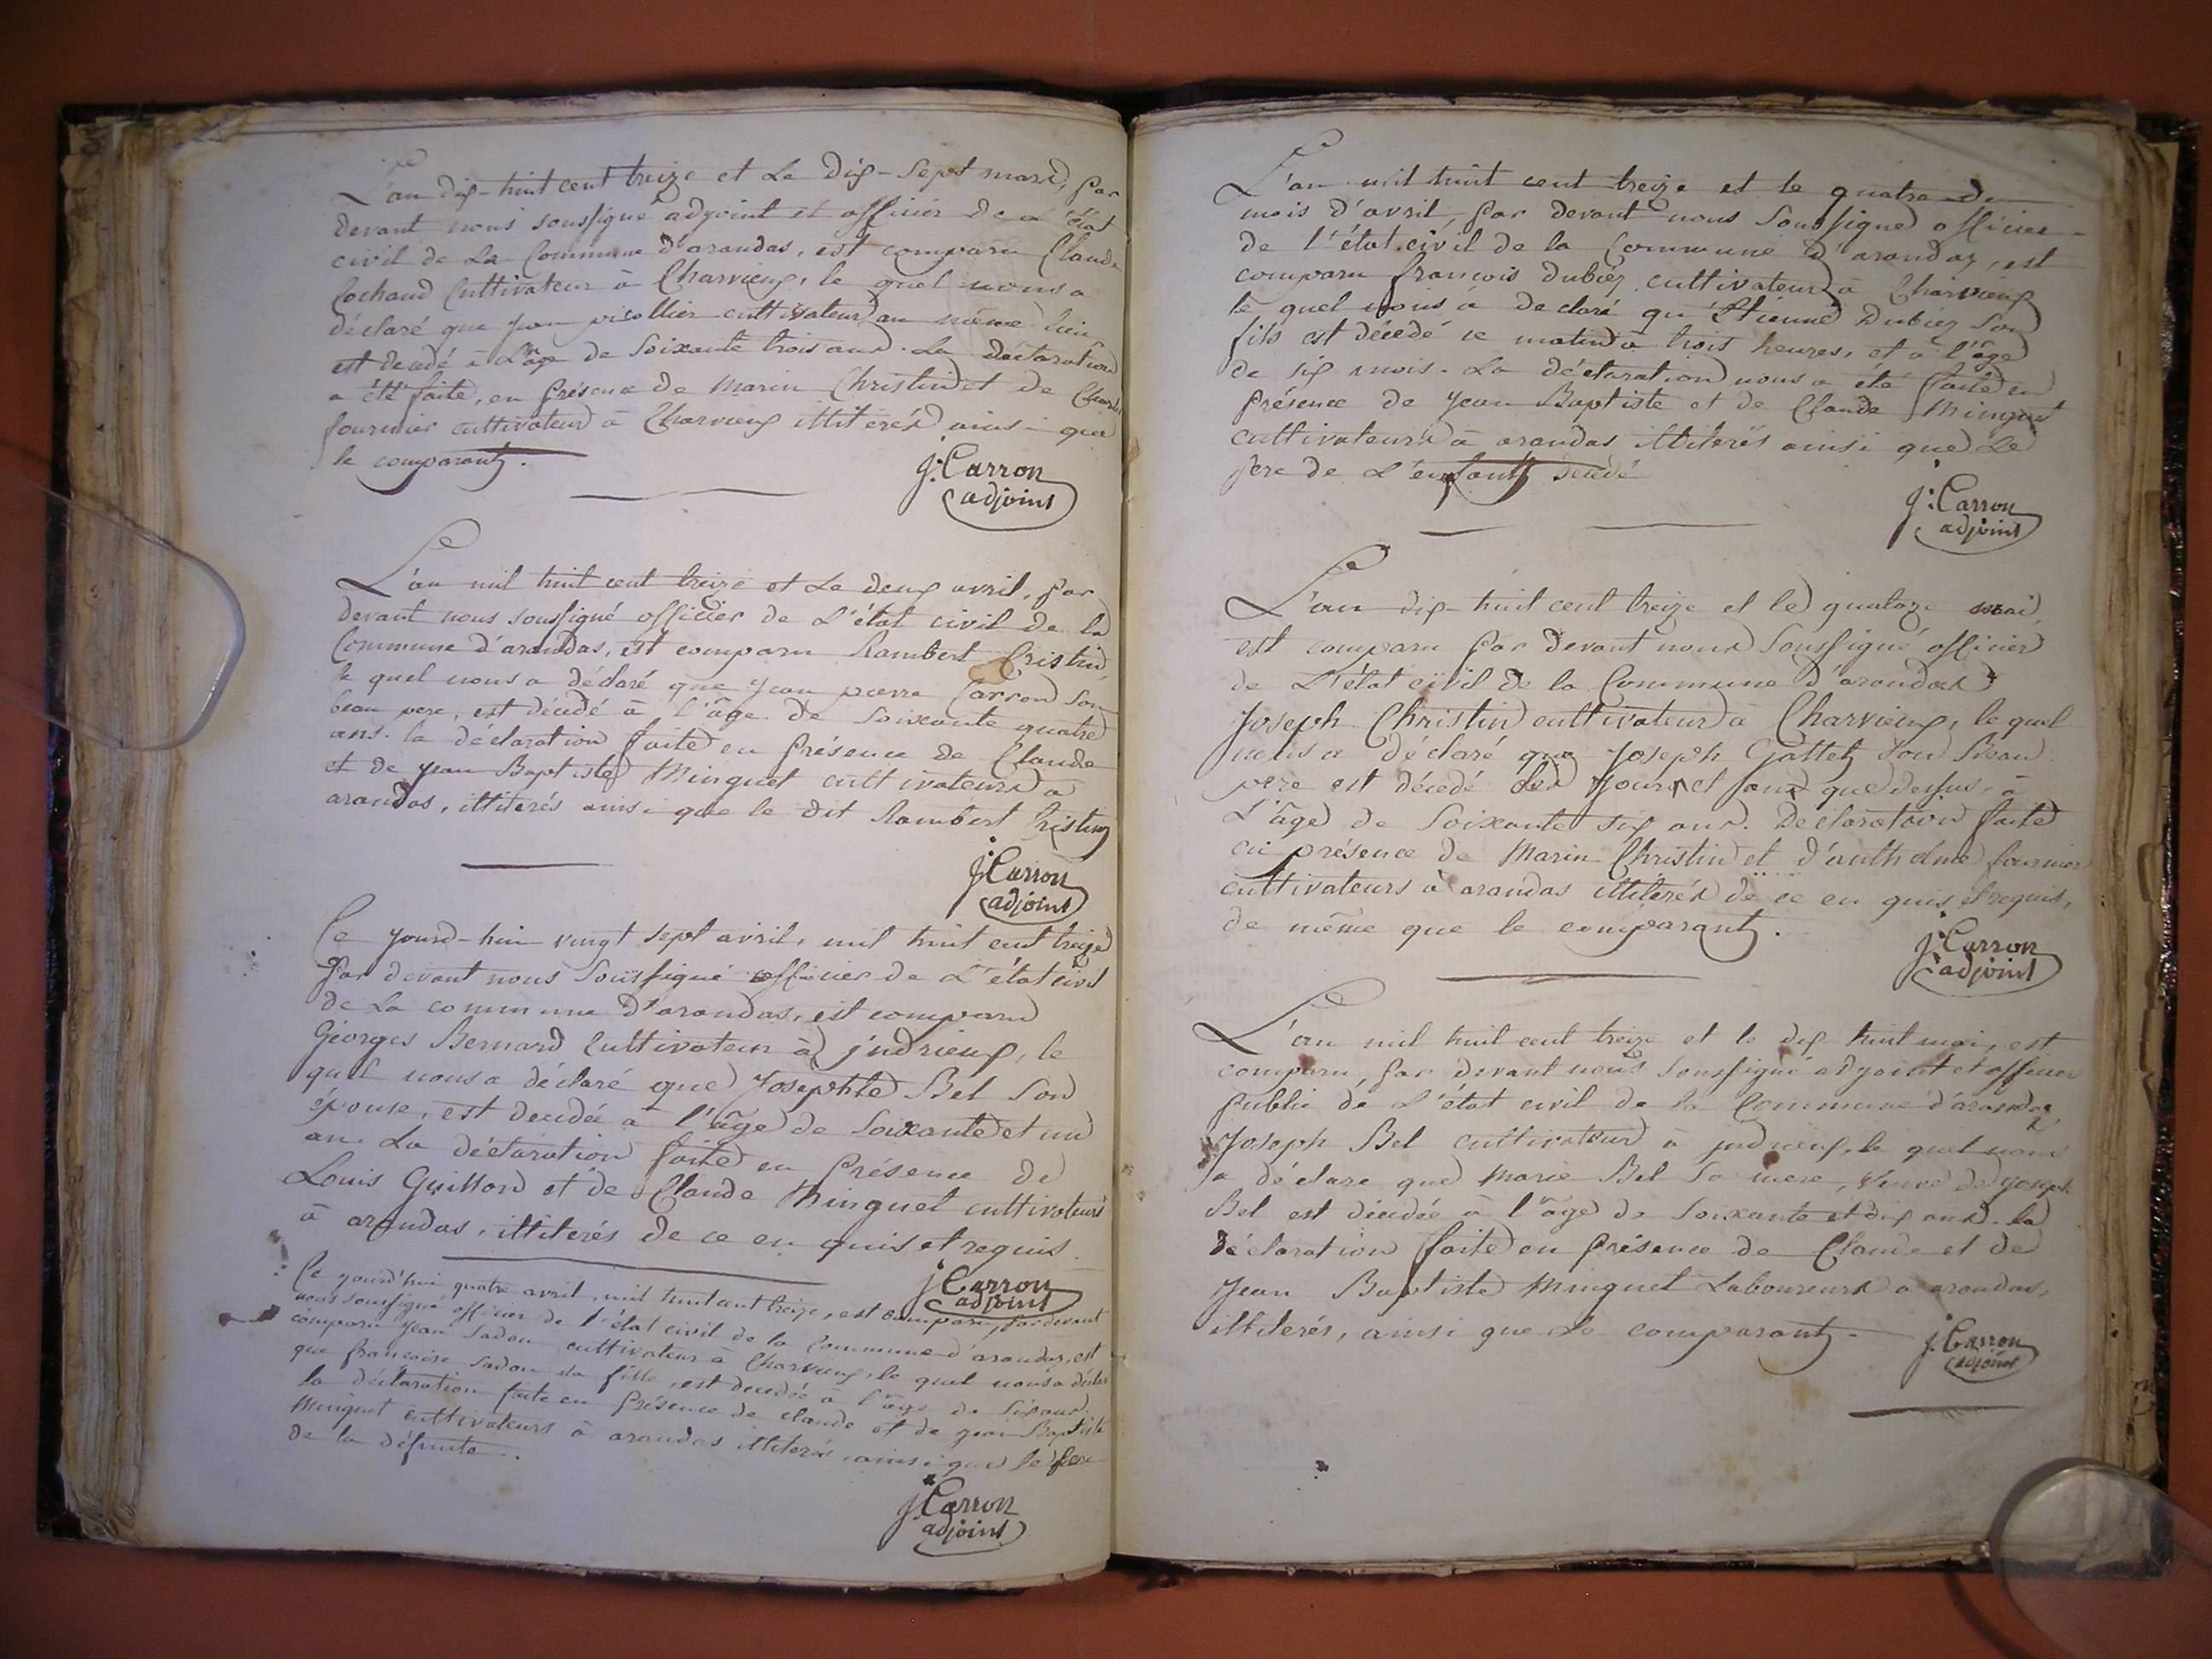 L'an dix-huit cent treize et Le Dix-Sept mars, par
devant nous soussigné adjoint et officier de l'état
civil de La Commune d'arandas, est comparu Claude
Cochand Cultivateur à Charvieux, le quel nous a
déclaré que jean picollier cultivateur au même lieu
est decedé à L'âge de Soixante trois ans. La déclaration
a été faite, en présence de Marin Christin et de Charles
fournier cultivateurs à Charvieux illiterés ainsi que
le comparant.
j: Carron
adjoint
L'an mil huit cent treize et Le deux avril, par
devant nous soussigné officier de L'état civil de la
Commune d'arandas, est comparu Rambert Cristin,
le quel nous a déclaré que jean pierre Carron Son
beau pere, est décédé à l'âge de Soixante quatre
ans. la déclaration faite en présence de Claude
et de jean Baptiste Minguet cultivateurs à
arandas, illiterés ainsi que le dit Rambert Cristin
j: Carron
adjoint
Ce jourd-hui vingt sept avril, mil huit cent treize
par devant nous Soussigné officier de L'état civil
de La commune d'arandas, est comparu
Georges Bernard Cultivateur à jndrieux, le
quel nous a déclaré que Josephte Bel Son
épouse, est decedée à l'âge de Soixante et un
an. La déclaration faite en présence de
Louis Guillon et de Claude Minguet cultivateurs
à arandas, illiterés de ce en quis et requis.
j: Carron
adjoint
Ce jourd'hui quatre avril, mil huit cent treize, est comparu, par devant
nous soussigné officier de l'état civil de la Commune d'arandas, est
comparu jean Sadon cultivateur à Charvieux, le quel nous a déclaré
que francoise Sadon sa fille, est decedée à l'âge de six ans.
la déclaration faite en présence de claude et de jean Baptiste
Minguet cultivateurs à arandas illiterés, ainsi que le pere
de la défunte.
j: Carron
adjoint
L'an mil huit cent treize et le quatre du
mois d'avril, par devant nous Soussigné officier
de l'état civil de la Commune d'arandas, est
comparu francois Dubiez cultivateur à Charvieux
le quel nous à declaré qu'Etienne Dubiez Son
fils est décédé ce matin à trois heures, et à l'âge
de six mois. La déclaration nous a été faite en
présence de jean Baptiste et de Claude Minguet
cultivateurs à arandas illiterés ainsi que Le
pere de L'enfant decedé
j: Carron
adjoint
L'an dix-huit cent treize et le quatorze mai,
est comparu par devant nous Soussigné officier
de L'état civil de la Commune d'arandas
Joseph Christin cultivateur à Charvieux, le quel
nous a déclaré que Joseph Gattet Son Beau
pere est décédé les jour et an que dessus, à
L'âge de Soixante six ans. Déclaration faite
en présence de Marin Christin et d'anthelme fournier
cultivateurs à arandas illiterés de ce en quis et requis,
de même que le comparant.
j: Carron
adjoint
L'an mil huit cent treize et le dix huit mai, est
comparu, par devant nous Soussigné adjoint et officier
public de L'état civil de la Commune d'arandas,
Joseph Bel cultivateur à jndrieux, le quel nous
a déclaré que Marie Bel Sa mere, Veuve de joseph
Bel est décédée à l'âge de Soixante et dix ans. la
déclaration faite en présence de Claude et de
Jean Baptiste Minguet Laboureurs à arandas,
illiterés, ainsi que Le comparant.
j: Carron
adjoint